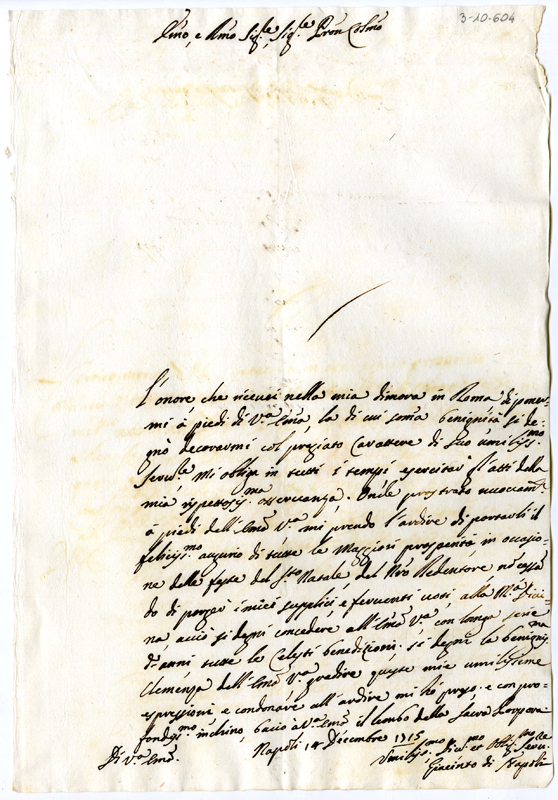 3-10-604
Emo, e Rmo Sig.re Sig.re Pron Colmo
L'onore che ricevei nella mia dimora in Roma di poner-
mi à piedi di V.ra Em.za, la di cui somã benignità si de-
gnò decorarmi col pregiato Carattere di Suo umiliss.mo
Serv.re Mi obliga in tutti i tempi esercitar gl'atti della
mia rispettosis.ma osservanza. Onde prostrato
à piedi dell'Em.za V.ra mi prendo l'ardire di portarli il
felicis.mo augurio di tutte le Maggiori prosperità in occasio-
ne delle feste del S.to Natale del Nro Redentore, nè cessa
do di porger i miei supplici, e ferventi voti alla M.tà Divi-
na acciò si degni concedere all'Em.za V.ra con longa serie
d'anni tutte le Celesti benedizioni. Si degni la benigniss.ma
Clemenza dell'Em.za V.ra gradire queste mie umilissime
espressioni, e condonare all'ardire mi hò preso, e con pro-
fondis.mo inchino, bacio à V.ra Em.za il lembo della Sacra Porpora.
Di V.ra Em.za Napoli 14 Decembre 1715
Umilis.mo, Div.mo et Obl.mo Serv.re
Giacinto di Napoli